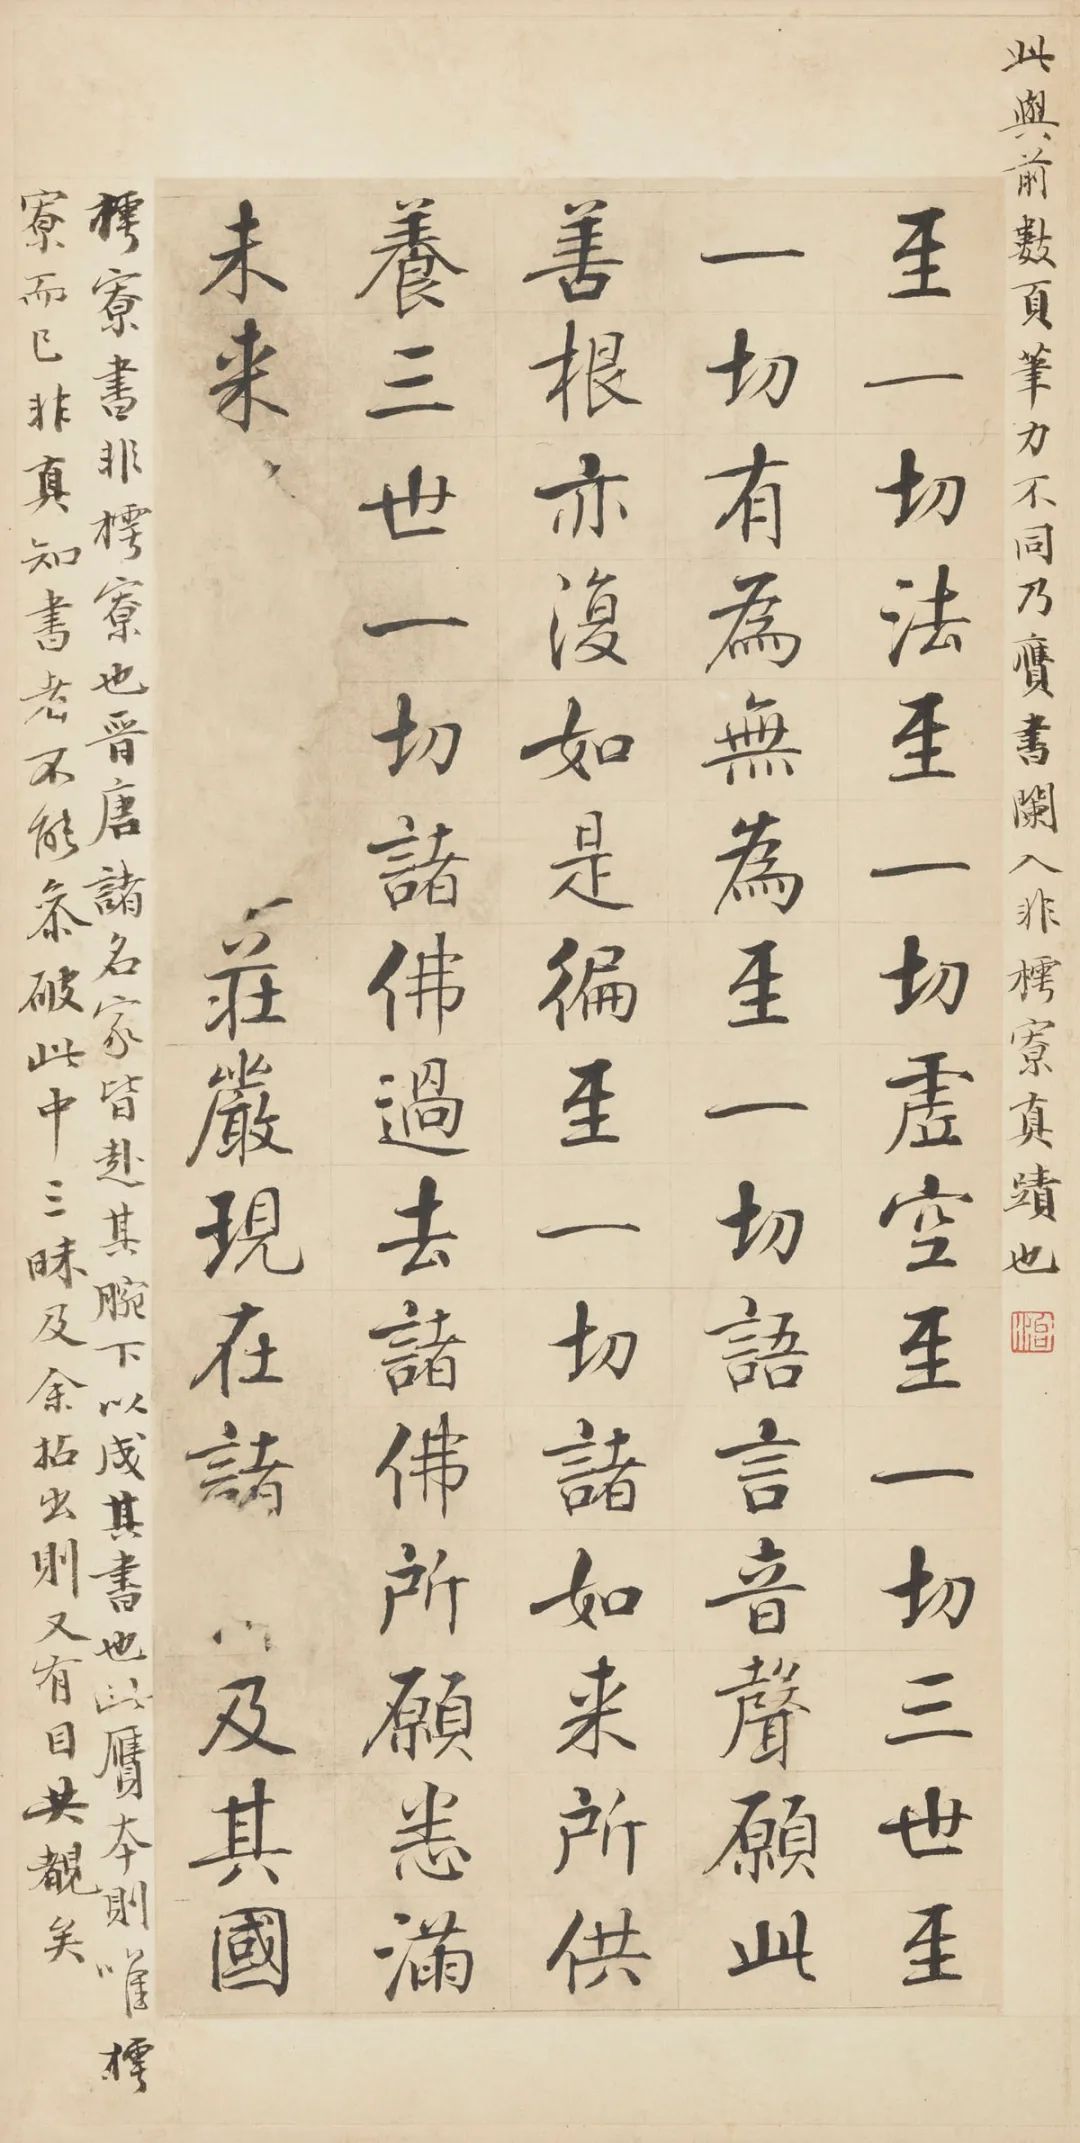 此與前數頁筆力不同乃贗書闌入非樗寮真蹟也
至一切法至一切虛空至一切三世至
一切有為無為至一切語言音聲願此
善根亦復如是徧至一切諸如来所供
養三世一切諸佛過去諸佛所願悉滿
未来莊嚴現在諸及其國
樗寮書非樗寮也晋唐諸名家皆赴其腕下以成其書也此贋本則唯樗
寮而已非真知書者不能叅破此中三昧及余拈出則又有目共覩矣